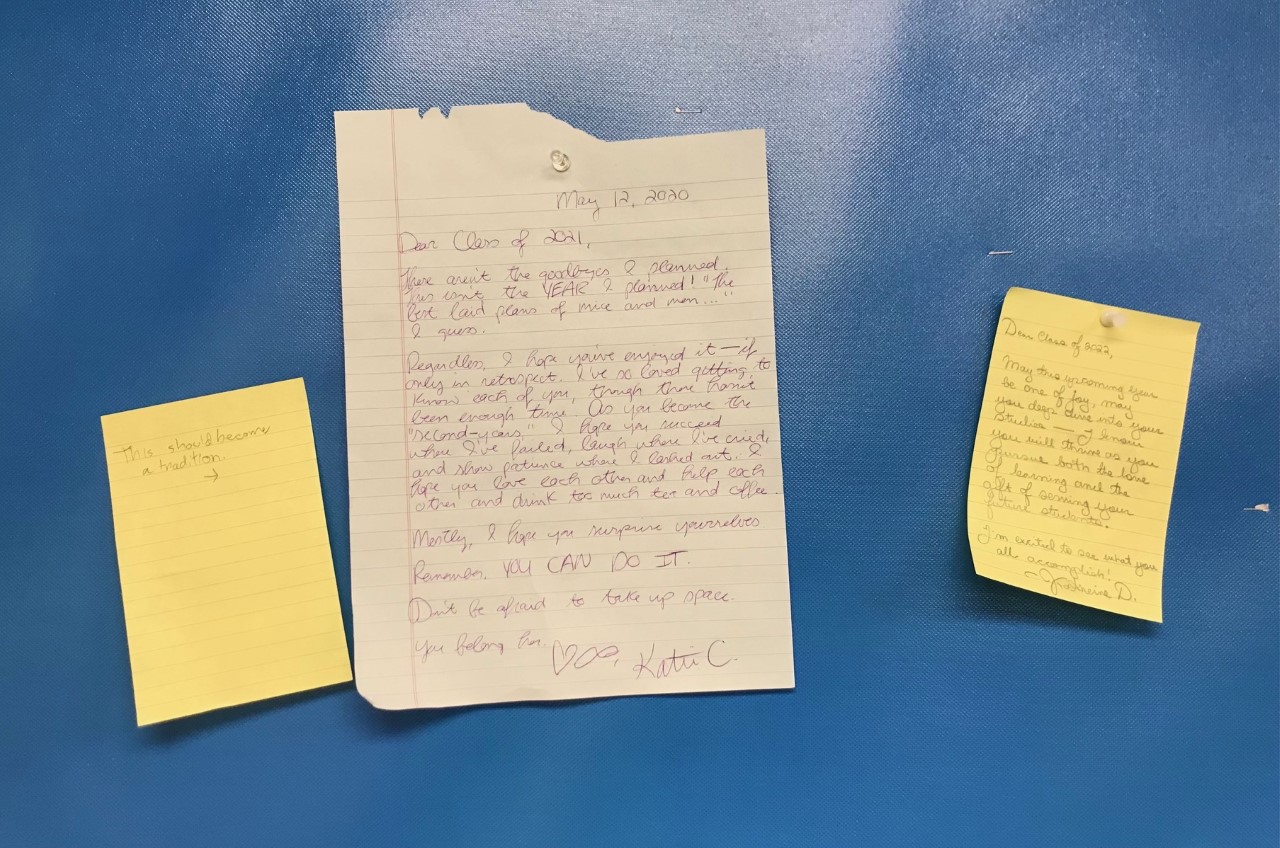 This should become
a tradition.
→
May 12, 2020
Dear Class of 2021,
These aren't the goodbyes I planned.
This isn't the YEAR I planned! "The
best laid plans of mice and men..."
I guess.
Regardless, I hope you've enjoyed it—if
only in retrospect. I've so loved getting to
know each of you, though there hasn't
been enough time. As you become the
"second-years," I hope you succeed
where I've failed, laugh where I've cried,
and show patience where I lashed out. I
hope you love each other and help each
other and drink too much tea and coffee.
Mostly, I hope you surprise yourselves
Remember, YOU CAN DO IT.
Don't be afraid to take up space.
You belong here.
Katie C.
Dear Class of 2022,
May this upcoming year
be one of joy, may
you deep dive into your
studies — I know
you will thrive as you
pursue both the love
of learning and the
gift of serving your
future students.
I'm excited to see what you
all accomplish!
D.